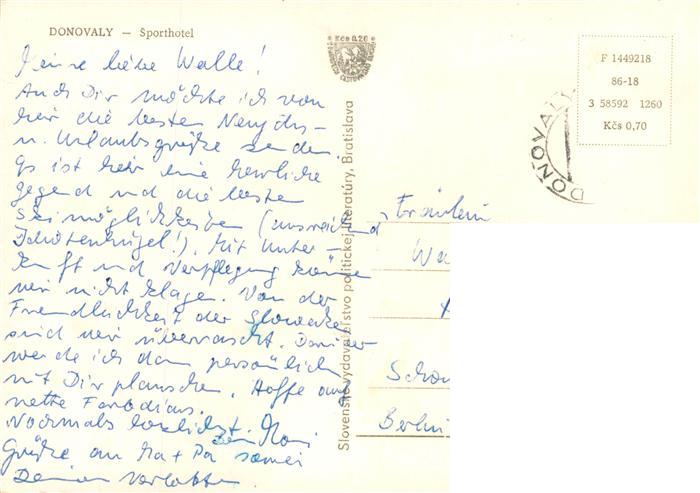 DONOVALY — Športhotel
Kčs 0.20
Meine liebe Walle!
Auch Dir möchte ich von
hier die besten Neujahrs-
u. Urlaubsgrüße senden.
Es ist hier eine herrliche
Gegend und die besten
Skimöglichkeiten (ausreichend
Idiotenhügel!). Mit Unter-
kunft und Verpflegung können
wir nicht klagen. Von der
Freundlichkeit der Slowaken
sind wir überrascht. Darüber
werde ich dann persönlich
mit Dir plauschen. Hoffe auf
nette Farbdias.
Nochmals herzlichst Dein
Grüße an Ma + Pa sowie
Deinen Verlobten
Slovenské vydavateľstvo politickej literatúry, Bratislava
F 1449218
86-18
3 58592 1260
Kčs 0,70
DONOVALY
Fräulein
Wa
Berlin